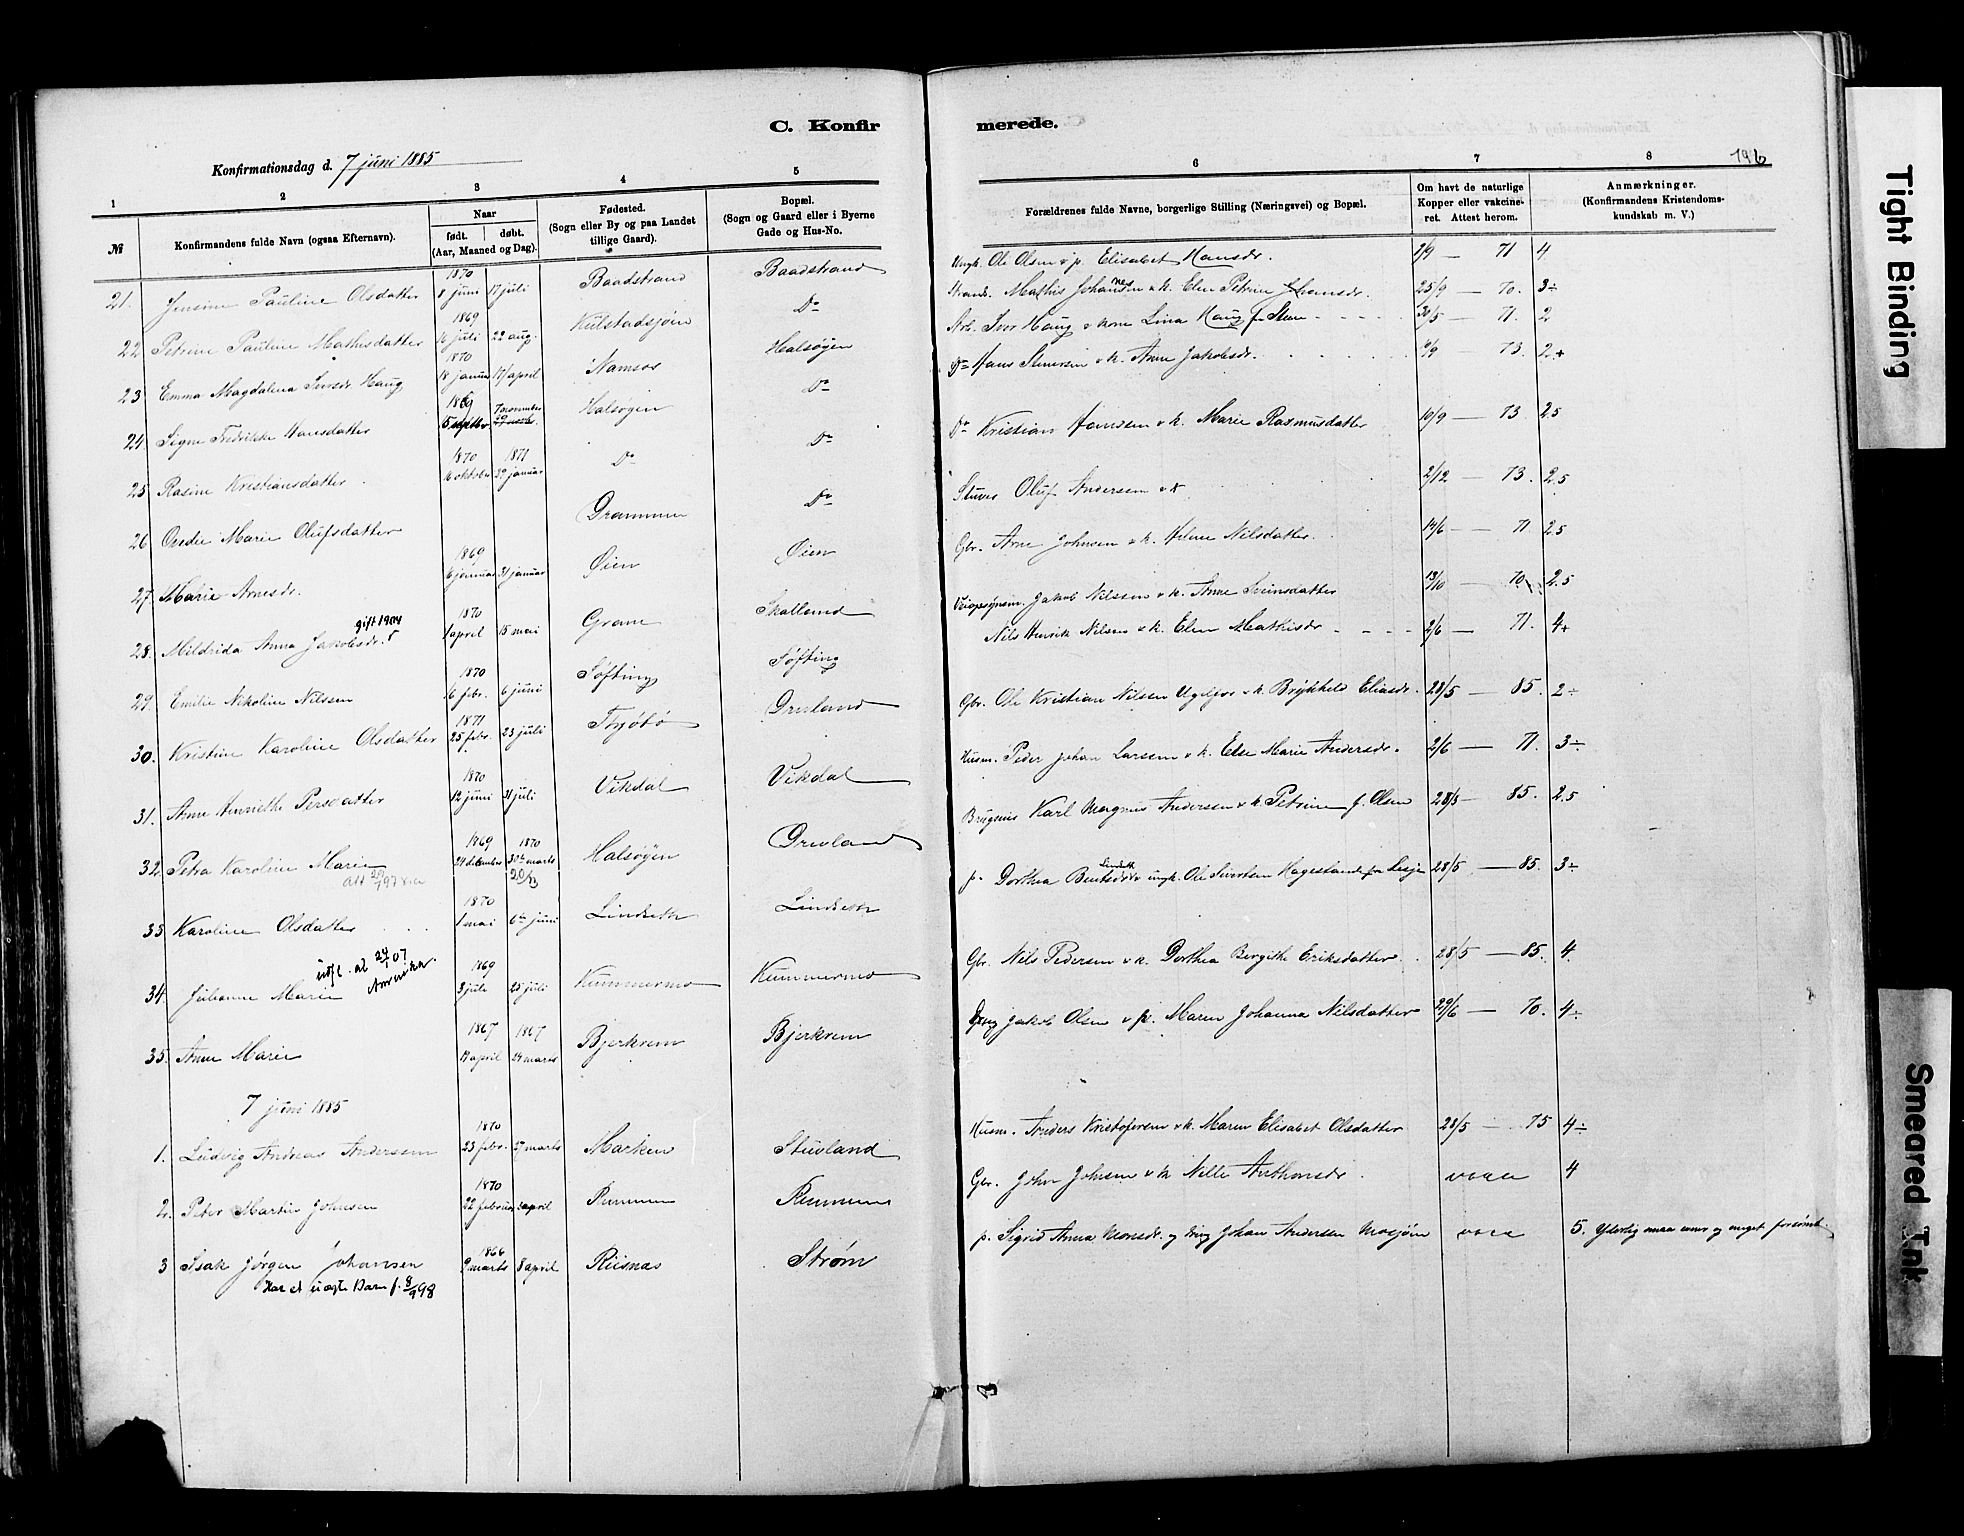 C. Konfirmerede.
196
Konfirmationsdag d. 7 juni 1885
1 2 3 4 5 6 7 8
№
Konfirmandens fulde Navn (ogsaa Efternavn).
Naar
født. døbt.
(Aar, Maaned og Dag).
Fødested.
(Sogn eller By og paa Landet
tillige Gaard).
Bopæl.
(Sogn og Gaard eller i Byerne
Gade og Hus-No.
Forældrenes fulde Navne, borgerlige Stilling (Næringsvei) og Bopæl.
Om havt de naturlige
Kopper eller vakcine-
ret. Attest herom.
Anmærkninger.
(Konfirmandens Kristendoms-
kundskab m. V.)
21. Jensine Pauline Olsdatter 1870 8 juni 17 juli Baadstrand Baadstrand Ungk. Ole Olsen o p. Elisabet Hansdr. 2/9 — 71 4
22 Petrine Pauline Mathisdatter 1869 16 juli 22 aug. Kulstadsjøen Do Strands. Mathis Johannesen o k. Elen Petrine Johansdr. 25/9 — 70. 3÷
23 Emma Magdalena Iversdr Haug 1870 18 januar 17 april Namsos Halsøyen Arb. Iver Haug o kone Lina Haug f. Steen 30/5 — 71. 2
24 Signe Fredrikke Hansdatter 1869 15 septbr 7 november Halsøyen Do Do Hans Simonsen o k. Anne Jakobsdr. 9/9 — 73. 2+
25 Rasine Kristiansdatter 1870 16 oktober 1871 32 januar Do Do Do Kristian Hanssen o k. Marie Rasmusdatter 10/9 — 73. 2.5
26 Ovedie Marie Olufsdatter Drammen Do Stuver Oluf Andersen o k 2/12 — 73. 2.5
27. Marie Arnesdr. 1869 6 januar 31 januar Øien Øien Gbr. Arne Johnsen o k. Helene Nilsdatter. 14/6 — 71. 2.5
28. Mildrida Anna Jakobsdr. gift 1904 1870 1 april 15 mai Grane Skalland Veiopsynsm. Jakob Nilssen o k. Anne Sveinsdatter 13/10 — 70 2.5
29. Emilie Nikoline Nilssen 1870 16 febr. 6 juni Søfting Søfting Nils Henrik Nilsen o k. Elen Mathisdr 2/6 — 71. 4+
30. Kristine Karoline Olsdatter 1871 25 febr. 23 juli Thjøtø Drevland Gbr. Ole Kristian Nilsen o k. Brykhels Eliasdr. 28/5 — 85. 2÷
31. Anne Henriette Persdatter 1870 12 juni 31 juli Vikdal Vikdal Husm. Peder Johan Larssen o k. Else Marie Andersdr. 2/6 — 71. 3÷
32 Petra Karoline Marie 1869 24 december 1870 30te marts Halsøyen Drevland Karl Magnus Andersen o k. Petrine f. Olsen 28/5 — 85. 2.5
33 Karoline Olsdatter 1870 1 mai 6te juni Lindseth Lindseth p. Dorthea Bentsdr o ungk. Ole Sivertsen Hagestande fra Lesje 28/5 — 85. 3÷
34. Julianne Marie udfl. at 24/ 07 Amerika. 1869 3 juli 25 juli Kummermo Kummermo Gbr. Nils Pedersen o k. Dorthea Bergithe Eriksdatter. 28/5 — 85. 4.
35. Anne Marie 1867 17 april 1867 24 marts Bjerkvem Bjerkvem Jakob Olsen o p. Maren Johanna Nilsdatter 29/6 — 70. 4÷
7 juni 1885
1. Ludvig Andreas Andersen 1870 23 febr. 27 marts Marken Stuvland Husm. Anders Kristofersen o k. Maren Elisabet Olsdatter 28/5 — 75 4÷
2. Peter Martin Johnsen 1870 22 februar 3 april Remmen Remmen Gbr. John Johnsen o k Nille Anthonsdr. vacc 4
3 Isak Jørgen Johansen 1866 9 marts 8 april Risnas Strøm p. Sigrid Anna Monsdr. og Ung Johan Andersen Mosjøen vacc 5. Yderlig og meget forsømt.
Har et uægte Barn f. 8/9 98
Tight Binding
Smeared Ink